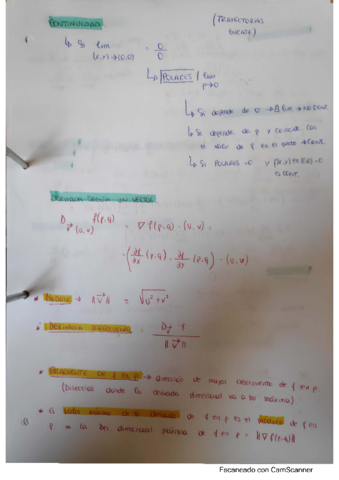 CONTINUIDAD
(TRAYECTORIAS
↳ Si lim = 0/0
(x,y)→(0,0)
↳ POLARES / lim
ρ→0
↳ Si depende de θ →
↳ Si depende de ρ y coincide con
el valor de f en el punto → CONT.
↳ Si POLARES=0 y
es CONT.
DERIVADA SEGÚN UN VECTOR
D f(p,q) = ∇ f(p,q) · (u,v) =
(u,v)
= (∂f/∂x (p,q), ∂f/∂y (p,q)) · (u,v)
→ ||v|| = √u²+v²
DERIVADA DIRECCIONAL = D f
||v||
GRADIENTE DE f EN p → Dirección de mayor crecimiento de f en p
(Dirección donde la derivada direccional va a ser máxima)
El valor máximo de la derivada de f en p es el módulo de f en
p ⇒ la der direccional máxima de f en p = ||∇f(p,q)||
Escaneado con CamScanner